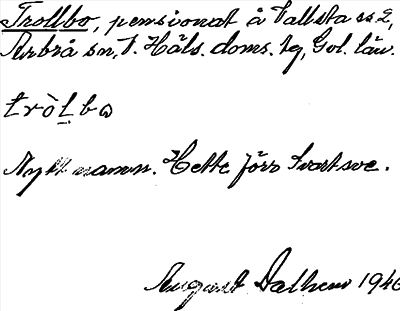 Trollbo, pensionat å Vallsta ss 2,
Arbrå sn, V. Häls. doms. tg, Gvl. län.
tròl̠bω
Nytt namn. Hette förr Svartsve.
August Dalhem 1940